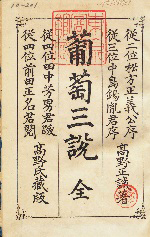 從二位松方正義公序
從三位中島錫胤君序
高野正誠著
葡萄三說 全
從四位田中芳男君跋
從四位前田正名君閱
高野氏藏版